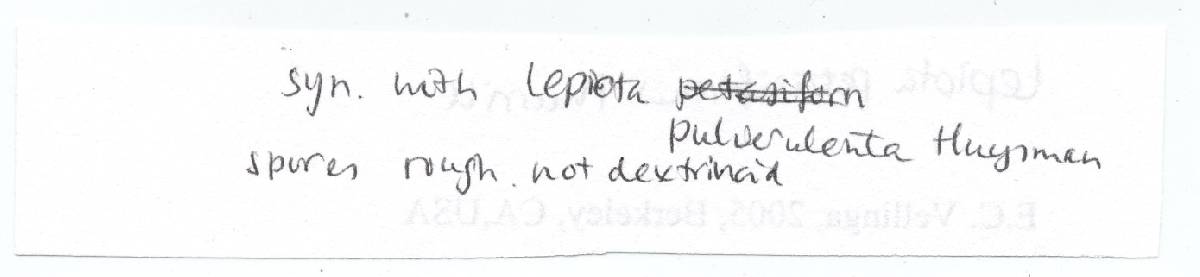 syn. with Lepiota petasiform
pulverulenta Huysman
spores rough. not dextrinoid
E.C. Vellinga, 2005, Berkeley, CA, USA